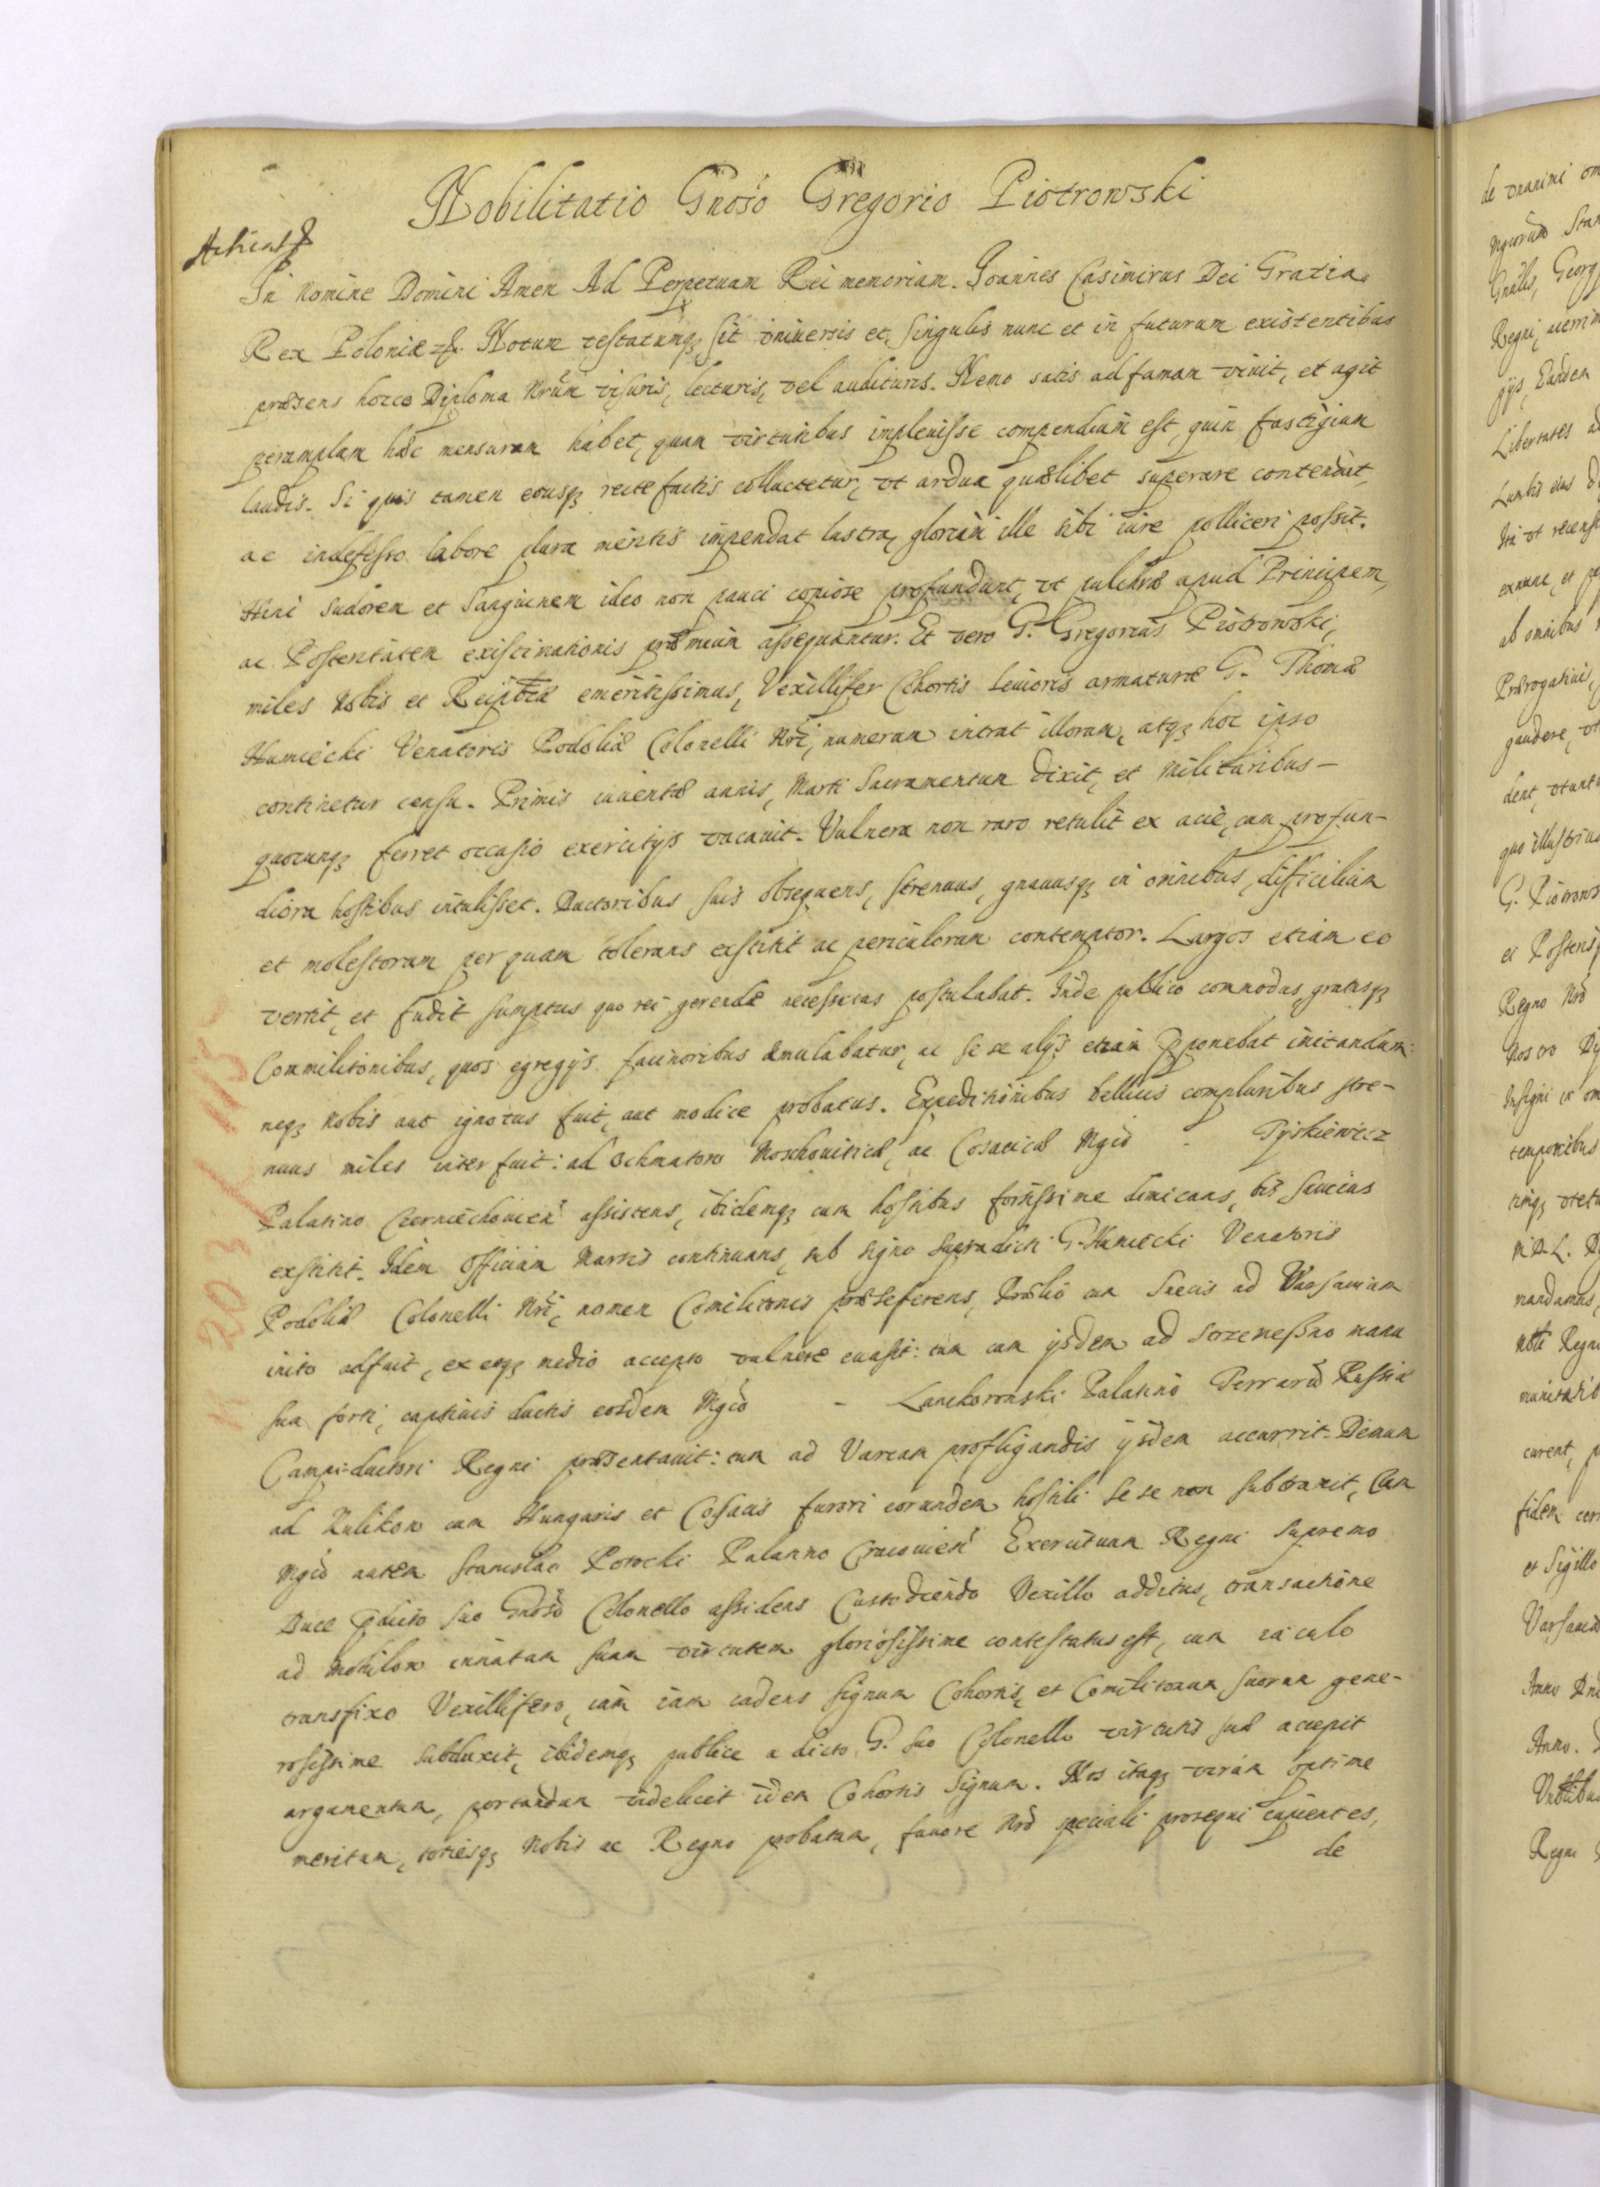 Nobilitatio Gnoso Gregorio Piotrowski
In Nomine Domini Amen Ad Perpetuam Rei memoriam. Joannes Casimirus Dei Gratia
Rex Poloniæ &. Notum testatumq; sit vniuersis et singulis nunc et in futurum existentibus
præsens hocce Diploma Nrũm visuris, lecturis, vel audituris. Nemo satis ad famam viuit, et agit
peramplam hæc mensuram habet, quam virtutibus impleuisse compendium est, quin fastigium
laudis. Si quis tamen eousq; recte factis colluctetur, vt ardua quælibet superare contendat,
ac indefesso labore plura meritis impendat lustra, gloriam ille sibi iure polliceri possit.
Hinc sudorem et Sanguinem ideo non pauci copiose profundunt, vt pulchræ apud Principem,
ac Posteritatem existimationis præmium assequantur. Et vero G. Gregorius Piotrowski,
miles Nobis et Reipblcæ emeritissimus, Vexillifer Cohortis Leuioris armaturæ G. Thomæ
Humiecki Venatoris Podoliæ Colonelli Nri, numerum intrat illorum, atq; hoc ipso
continetur censu. Primis iuuentæ annis, Marti Sacramentum dixit, et Militaribus
quocunq; ferret occasio exercitijs vacauit. Vulnera non raro retulit ex acie, cum profun-
diora hostibus intulisset. Ductoribus suis obsequens, strenuus, gnauusq; in omnibus, difficilium
et molestorum per quam tolerans exstitit ac periculorum contemptor. Largos etiam eo
vertit, et fudit sumptus quo rei gerendæ necessitas postulabat. Inde publico commodus, gratusq;
Commilitonibus, quos egregijs facinoribus æmulabatur, ac se se alijs etiam pponebat imitandum:
neq; Nobis aut ignotus fuit, aut modice probatus. Expeditionibus bellicis compluribus stre-
nuus miles interfuit: ad Ochmatow Moschouiticæ, ac Cosaticæ Mgco - Tyskiewicz
Palatino Czerniechouien assistens, ibidemq; cum hostibus fortissime dimicans, bis saucius
exstitit. Idem Officium Martis continuans, sub signo supradicti G. Humiecki Venatoris
Podoliæ Colonelli Nri, nomen Comilitonis præseferens, Prælio cum Suecis ad Varsauiam
inito adfuit, ex eoq; medio accepto vulnere euasit: tum cum ijsdem ad Strzemeszno manu
sua forti, captiuis ductis eosdem Mgco - Lanckoronski Palatino Terrarũ Russiæ
Campi-ductori Regni præsentauit: cum ad Varcam profligandis ijsdem accurrit. Demum
ad Kulikow cum Hungaris et Cosacis furori eorundem hostili se se non subtraxit, Cum
Mgco autem Stanislao Potocki Palatino Cracouien Exercituum Regni Supremo
Duce pdicto suo Gnoso Colonello assidens Custodiendo Vexillo additus, transactione
ad Mohilow innatam suam virtutem gloriosissime contestatus est, cum iaculo
transfixo Vexillifero, iam iam cadens signum Cohortis, et Comilitonum suorum gene-
rosissime subduxit, ibidemq; publice a dicto G. suo Colonello virtutis suæ accepit
argumentum, portandum videlicet idem Cohortis Signum. Nos itaq; virum optime
meritum, totiesq; Nobis ac Regno probatum, fauore Nro speciali prosequi cupientes,
de
n 203 f 115